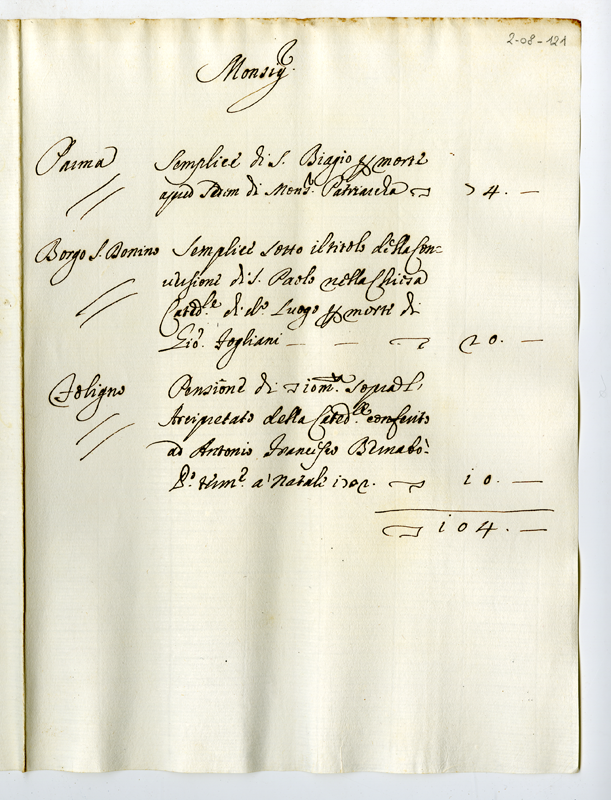 2-08-121
Monsig.r
Parma Semplice di S. Biagio per morte
apud Sedem di Mons.r Patriarcha 74. —
Borgo S. Donino Semplice sotto il titolo della Con-
versione di S. Paolo nella Chiesa
Cated.le di d.o Luogo per morte di
Gio. Fogliani — — 20. —
Foligno Pensione di 10 m.ta sopra l'
Arcipretato della Cated.le conferito
ad Antonio Francesco Bernabò
P.o term.e a' Natale 1702. 10. —
104. —